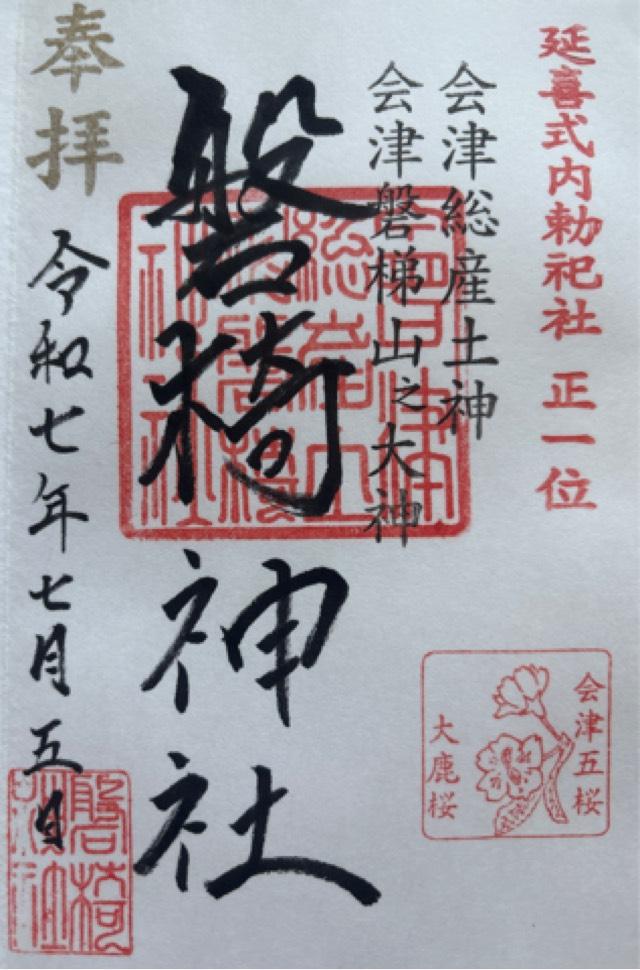 延喜式内勅祀社 正一位
会津総産土神
会津磐梯山之大神
磐椅神社
奉拝
令和七年七月五日
会津五桜
大鹿桜